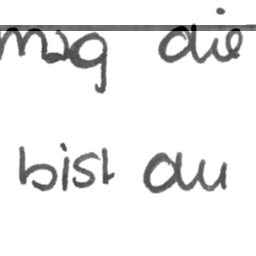 mag die
bist du